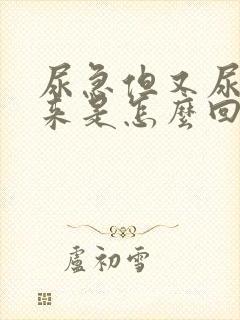 尿急但又尿
来是怎麼回
盧初雪